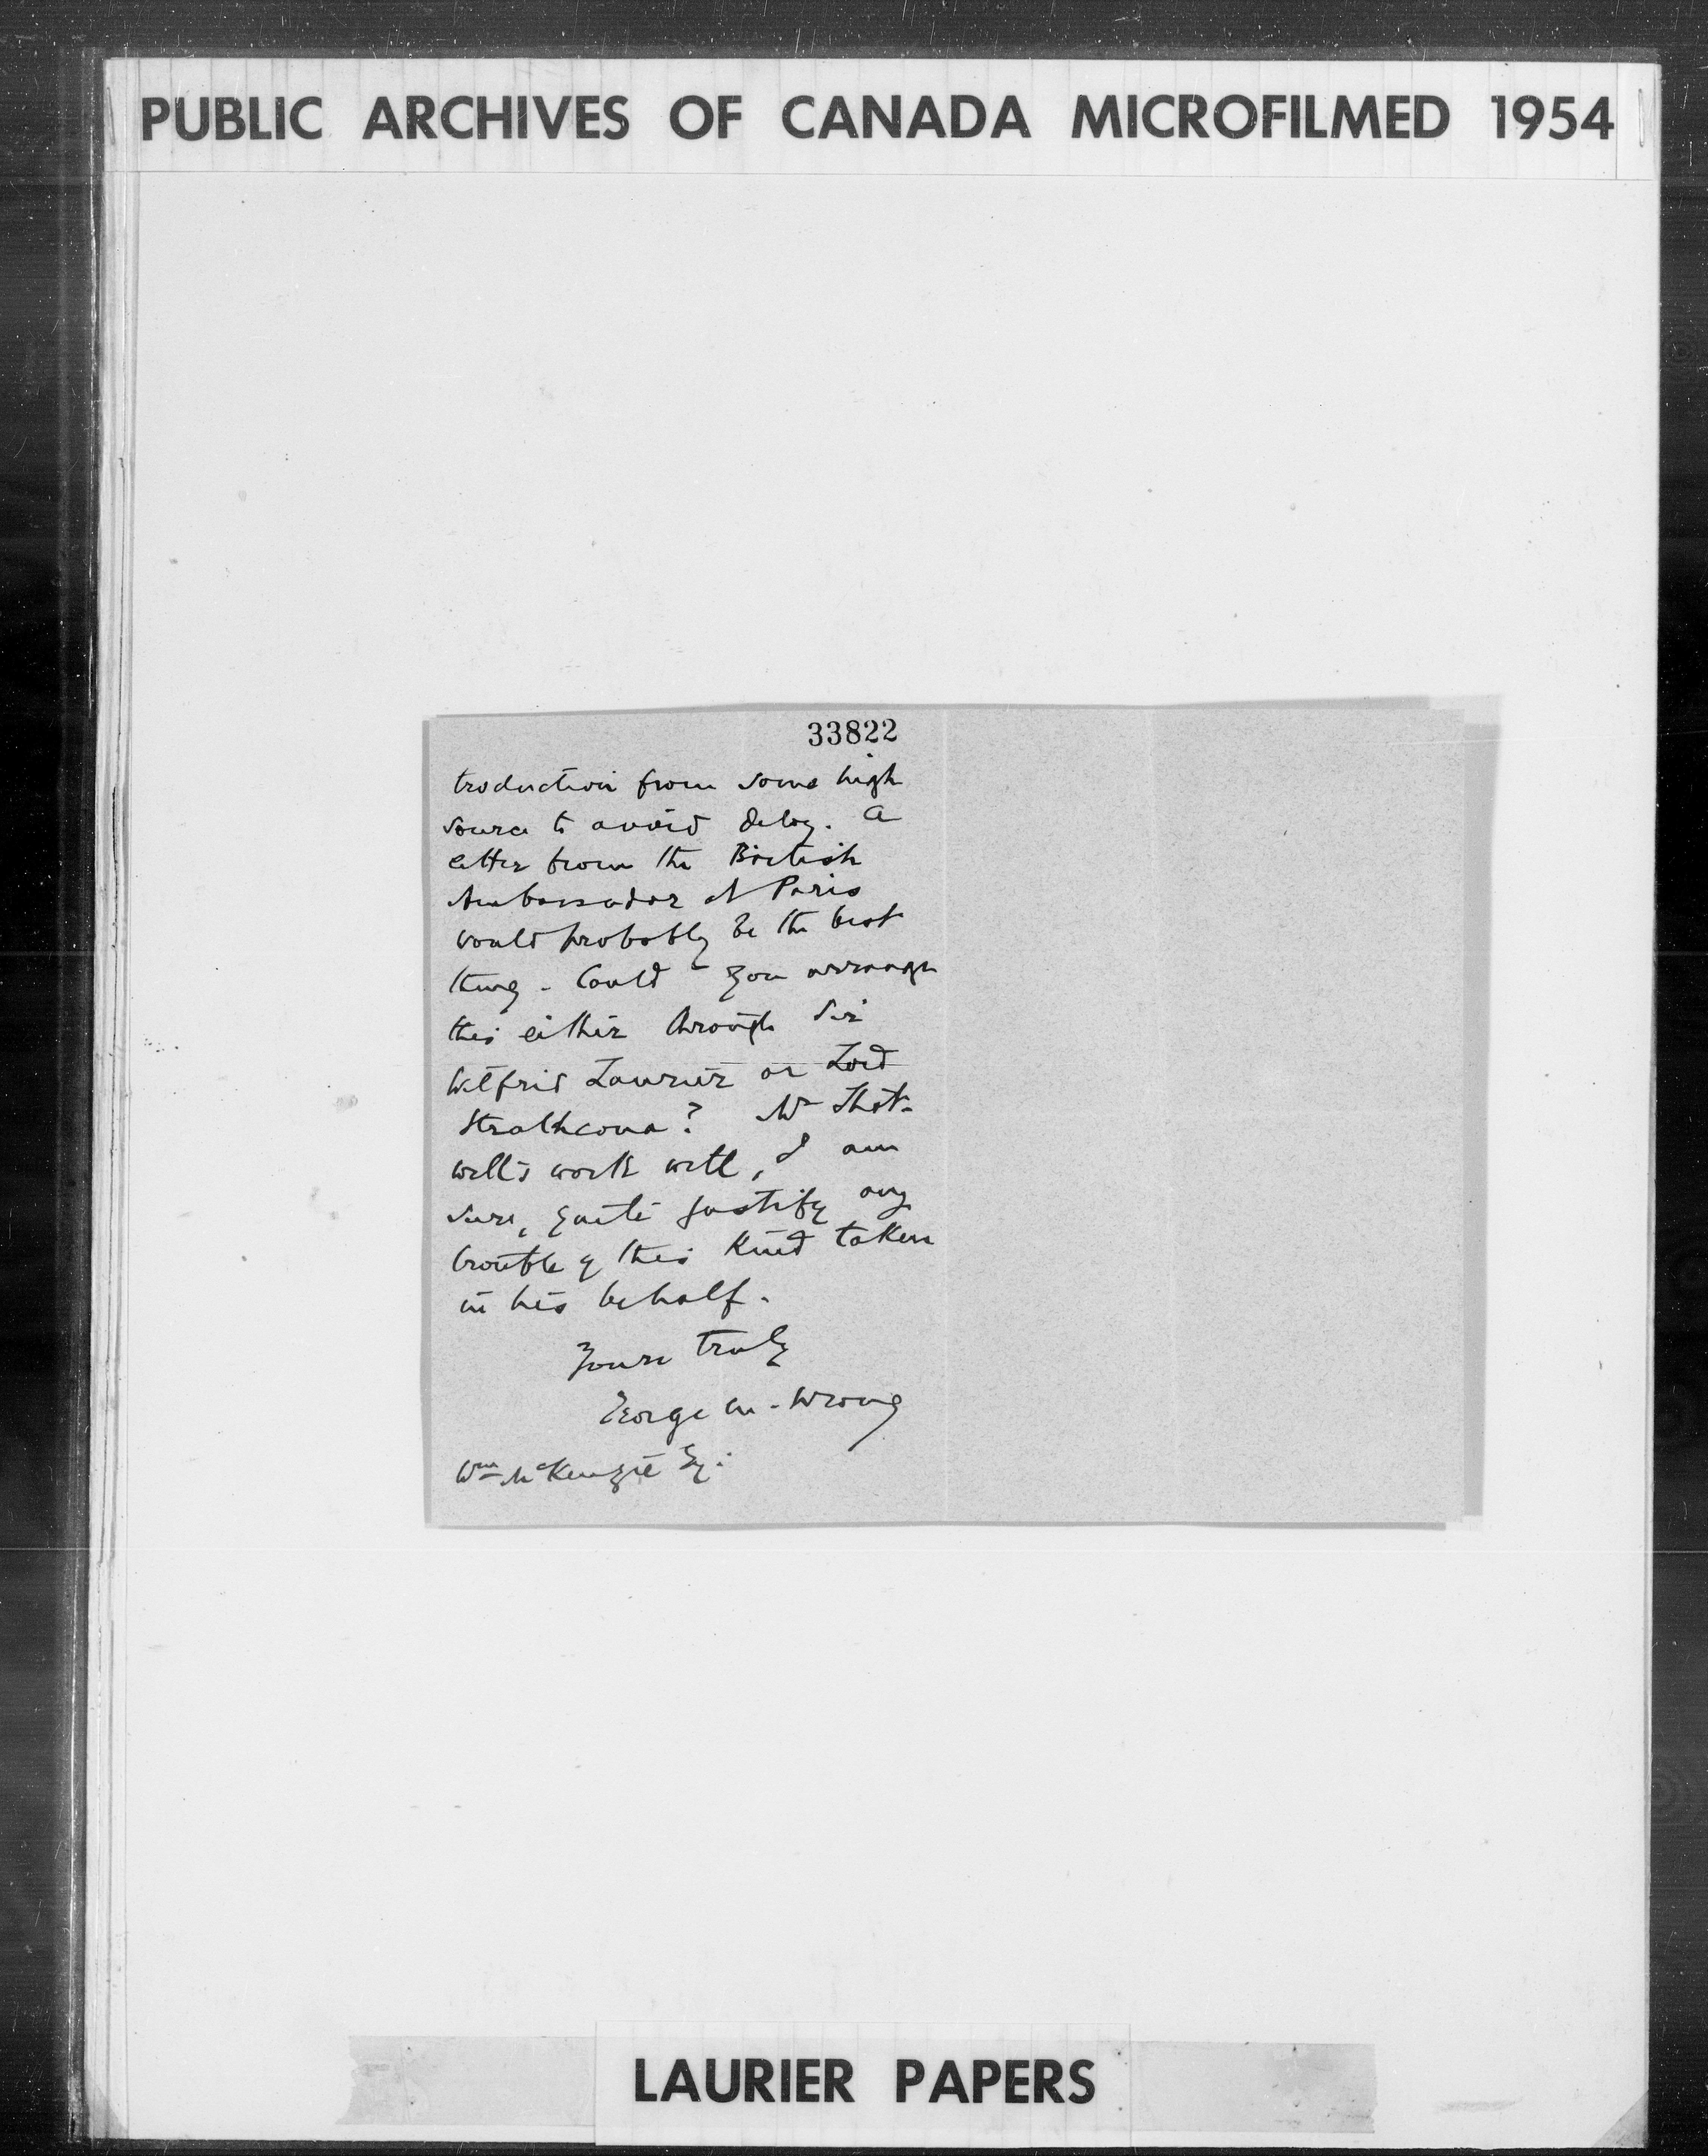 PUBLIC ARCHIVES OF CANADA MICROFILMED 1954
33822
troduction from some high
source to avoid delay. A
letter from the British
Ambassador at Paris
would probably be the best
thing. Could you arrange
this either through Sir
Wilfrid Laurier or Lord
Strathcona? Mr Shot-
well's work will, I am
sure, quite justify any
trouble of this kind taken
in his behalf.
Yours truly
George M. Wrong
Wm McKenzie Esq.
LAURIER PAPERS